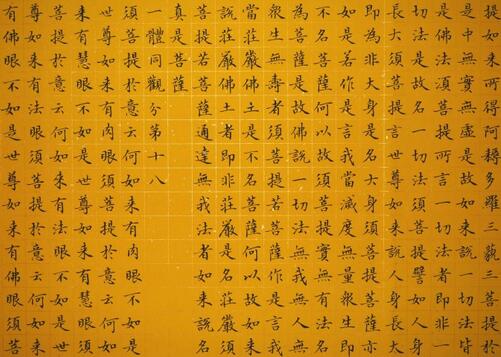 提如來所得阿耨多羅三藐三菩提於
是中無實無虛是故如來說一切法皆
是佛法須菩提所言一切法者即非一
切法是故名一切法須菩提譬如人身
長大須菩提言世尊如來說人身長大
即為非大身是名大身須菩提菩薩亦
如是若作是言我當滅度無量眾生即
不名菩薩何以故須菩提實無有法名
為菩薩是故佛說一切法無我無人無
眾生無壽者須菩提若菩薩作是言我
當莊嚴佛土是不名菩薩何以故如來
說莊嚴佛土者即非莊嚴是名莊嚴須
菩提若菩薩通達無我法者如來說名
真是菩薩
一體同觀分第十八
須菩提於意云何如來有肉眼不如是
世尊如來有肉眼須菩提於意云何如
來有慧眼不如是世尊如來有慧眼須
菩提於意云何如來有法眼不如是世
尊如來有法眼須菩提於意云何如來
有佛眼不如是世尊如來有佛眼須菩